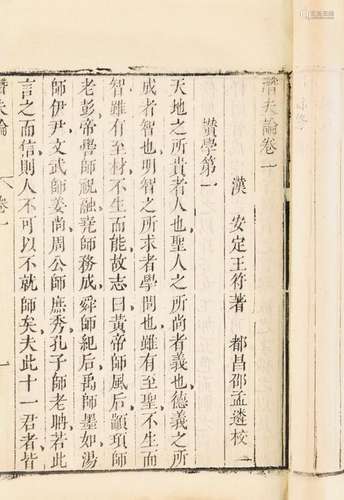 潛夫論卷一
漢　安定王符著　都昌邵孟遴校
讚學第一
天地之所貴者人也聖人之所尚者義也德義之所
成者智也明智之所求者學問也雖有至聖不生而
智雖有至材不生而能故志曰黃帝師風后顓頊師
老彭帝嚳師祝融堯師務成舜師紀后禹師墨如湯
師伊尹文武師姜尚周公師庶秀孔子師老聃若此
言之而信則人不可以不就師矣夫此十一君者皆
潛夫論　卷一　一